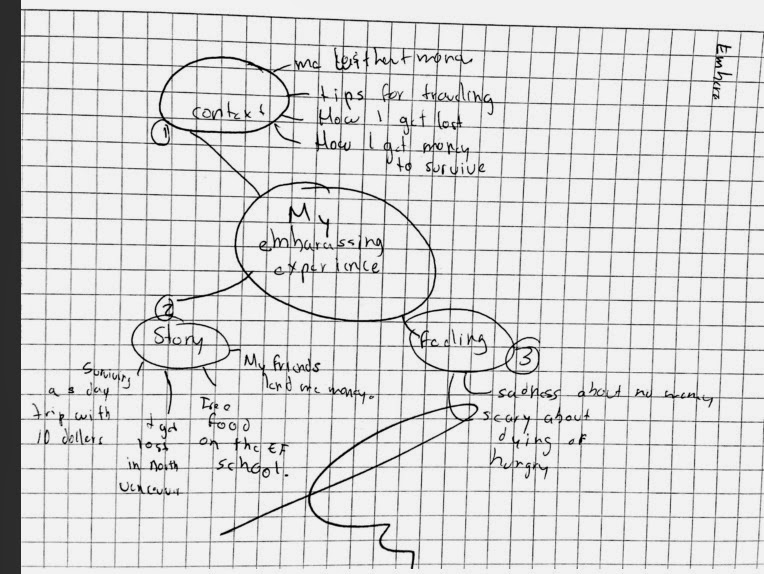 me without mone
context
tips for travling
How I get lost
How I get money
to survive
1
My
embarassing
experience
2
Story
Surviving
a 5 day
trip with
10 dollers
I get
lost
in north
vencouver
food
on the EF
school.
My friends
lend me money.
feeling
3
sadness about no money
scary about
dying of
hungry